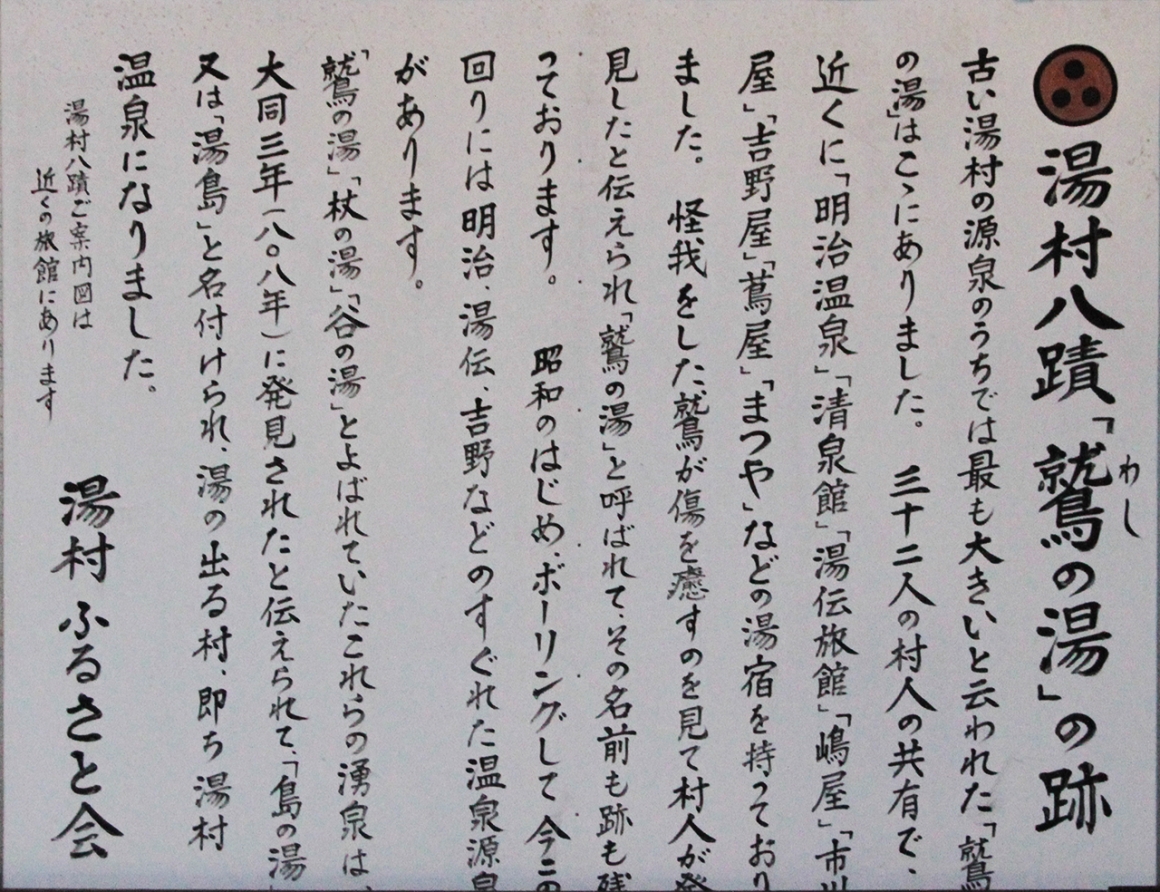 湯村八蹟「鷲の湯」の跡
わし
古い湯村の源泉のうちでは最も大きいと云われた「鷲
の湯」はこゝにありました。 三十二人の村人の共有で、
近くに「明治温泉」「清泉館」「湯伝旅館」「嶋屋」「市川
屋」「吉野屋」「蔦屋」「まつや」などの湯宿を持っており
ました。 怪我をした鷲が傷を癒すのを見て村人が発
見したと伝えられ「鷲の湯」と呼ばれて、その名前も跡も残
っております。 昭和のはじめ、ボーリングして今この
回りには明治、湯伝、吉野などのすぐれた温泉源泉
があります。
「鷲の湯」「杖の湯」「谷の湯」とよばれていたこれらの湧泉は、
大同三年(八〇八年)に発見されたと伝えられて、「島の湯
又は「湯島」と名付けられ、湯の出る村、即ち湯村
温泉になりました。
湯村八蹟ご案内図は
近くの旅館にあります
湯村ふるさと会